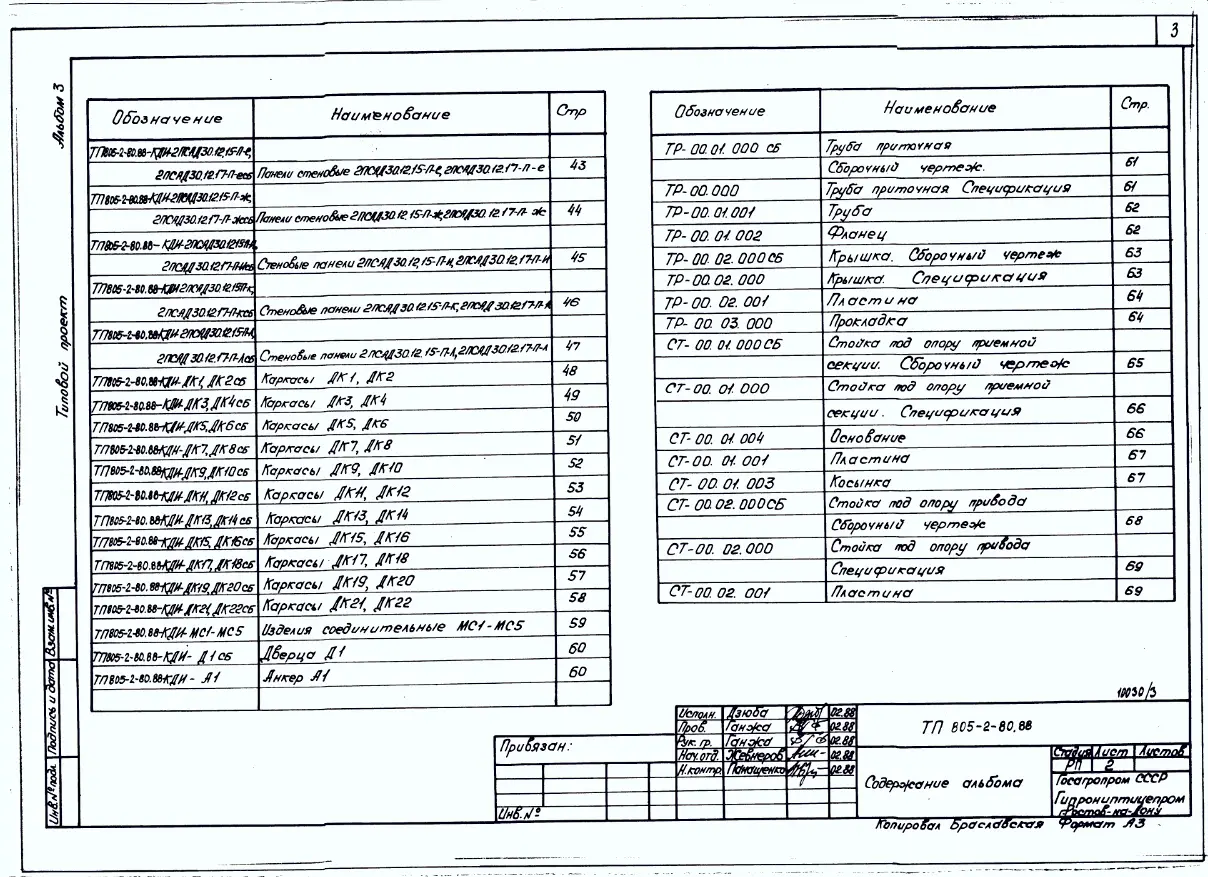 3
Альбом 3
Типовой проект
Обозначение Наименование Стр
ТП805-2-80.88-КДИ-2ПСЯД30.12.15-П-е,
2ПСЯД30.12.17-П-есб Панели стеновые 2ПСЯД30.12.15-П-е, 2ПСЯД30.12.17-П-е 43
ТП805-2-80.88-КДИ-2ПСЯД30.12.15-П-ж,
2ПСЯД30.12.17-П-жсб Панели стеновые 2ПСЯД30.12.15-П-ж, 2ПСЯД30.12.17-П-ж 44
ТП805-2-80.88-КДИ-2ПСЯД30.12.15-П-и,
2ПСЯД30.12.17-П-исб Стеновые панели 2ПСЯД30.12.15-П-и, 2ПСЯД30.12.17-П-и 45
ТП805-2-80.88-КДИ-2ПСЯД30.12.15-П-к,
2ПСЯД30.12.17-П-ксб Стеновые панели 2ПСЯД30.12.15-П-к, 2ПСЯД30.12.17-П-к 46
ТП805-2-80.88-КДИ-2ПСЯД30.12.15-П-л,
2ПСЯД30.12.17-П-лсб Стеновые панели 2ПСЯД30.12.15-П-л, 2ПСЯД30.12.17-П-л 47
ТП805-2-80.88-КДИ-ДК1, ДК2сб Каркасы ДК1, ДК2 48
ТП805-2-80.88-КДИ-ДК3, ДК4сб Каркасы ДК3, ДК4 49
ТП805-2-80.88-КДИ-ДК5, ДК6сб Каркасы ДК5, ДК6 50
ТП805-2-80.88КДИ-ДК7, ДК8сб Каркасы ДК7, ДК8 51
ТП805-2-80.88КДИ-ДК9, ДК10сб Каркасы ДК9, ДК10 52
ТП805-2-80.88-КДИ-ДК11, ДК12сб Каркасы ДК11, ДК12 53
ТП805-2-80.88КДИ-ДК13, ДК14сб Каркасы ДК13, ДК14 54
ТП805-2-80.88-КДИ-ДК15, ДК16сб Каркасы ДК15, ДК16 55
ТП805-2-80.88КДИ-ДК17, ДК18сб Каркасы ДК17, ДК18 56
ТП805-2-80.88-КДИ-ДК19, ДК20сб Каркасы ДК19, ДК20 57
ТП805-2-80.88-КДИ-ДК21, ДК22сб Каркасы ДК21, ДК22 58
ТП805-2-80.88-КДИ-МС1-МС5 Изделия соединительные МС1-МС5 59
ТП805-2-80.88-КДИ- Д1сб Дверца Д1 60
ТП805-2-80.88КДИ - А1 Анкер А1 60
Обозначение Наименование Стр.
ТР-00.01.000 СБ Труба приточная
Сборочный чертеж. 61
ТР-00.000 Труба приточная Спецификация 61
ТР-00.01.001 Труба 62
ТР-00.01.002 Фланец 62
ТР-00.02.000СБ Крышка. Сборочный чертеж 63
ТР-00.02.000 Крышка. Спецификация 63
ТР-00.02.001 Пластина 64
ТР-00.03.000 Прокладка 64
СТ-00.01.000СБ Стойка под опору приемной
секции. Сборочный чертеж 65
СТ-00.01.000 Стойка под опору приемной
секции. Спецификация 66
СТ-00.01.004 Основание 66
СТ-00.01.001 Пластина 67
СТ-00.01.003 Косынка 67
СТ-00.02.000СБ Стойка под опору привода
Сборочный чертеж 68
СТ-00.02.000 Стойка под опору привода
Спецификация 69
СТ-00.02.001 Пластина 69
Инв.№подл. Подпись и дата Взам.инв.№
10030/3
Привязан:
Инв.№
Исполн. Дзюба 02.88
Пров. Ганжа 02.88
Рук.гр. Ганжа 02.88
Нач.отд. Жевнеров 02.88
Н.контр. Панащенко 02.88
ТП 805-2-80.88
Содержание альбома
Стадия Лист Листов
РП 2
Госагропром СССР
Гипрониптицепром
г.Ростов-на-Дону
Копировал Браславская Формат А3